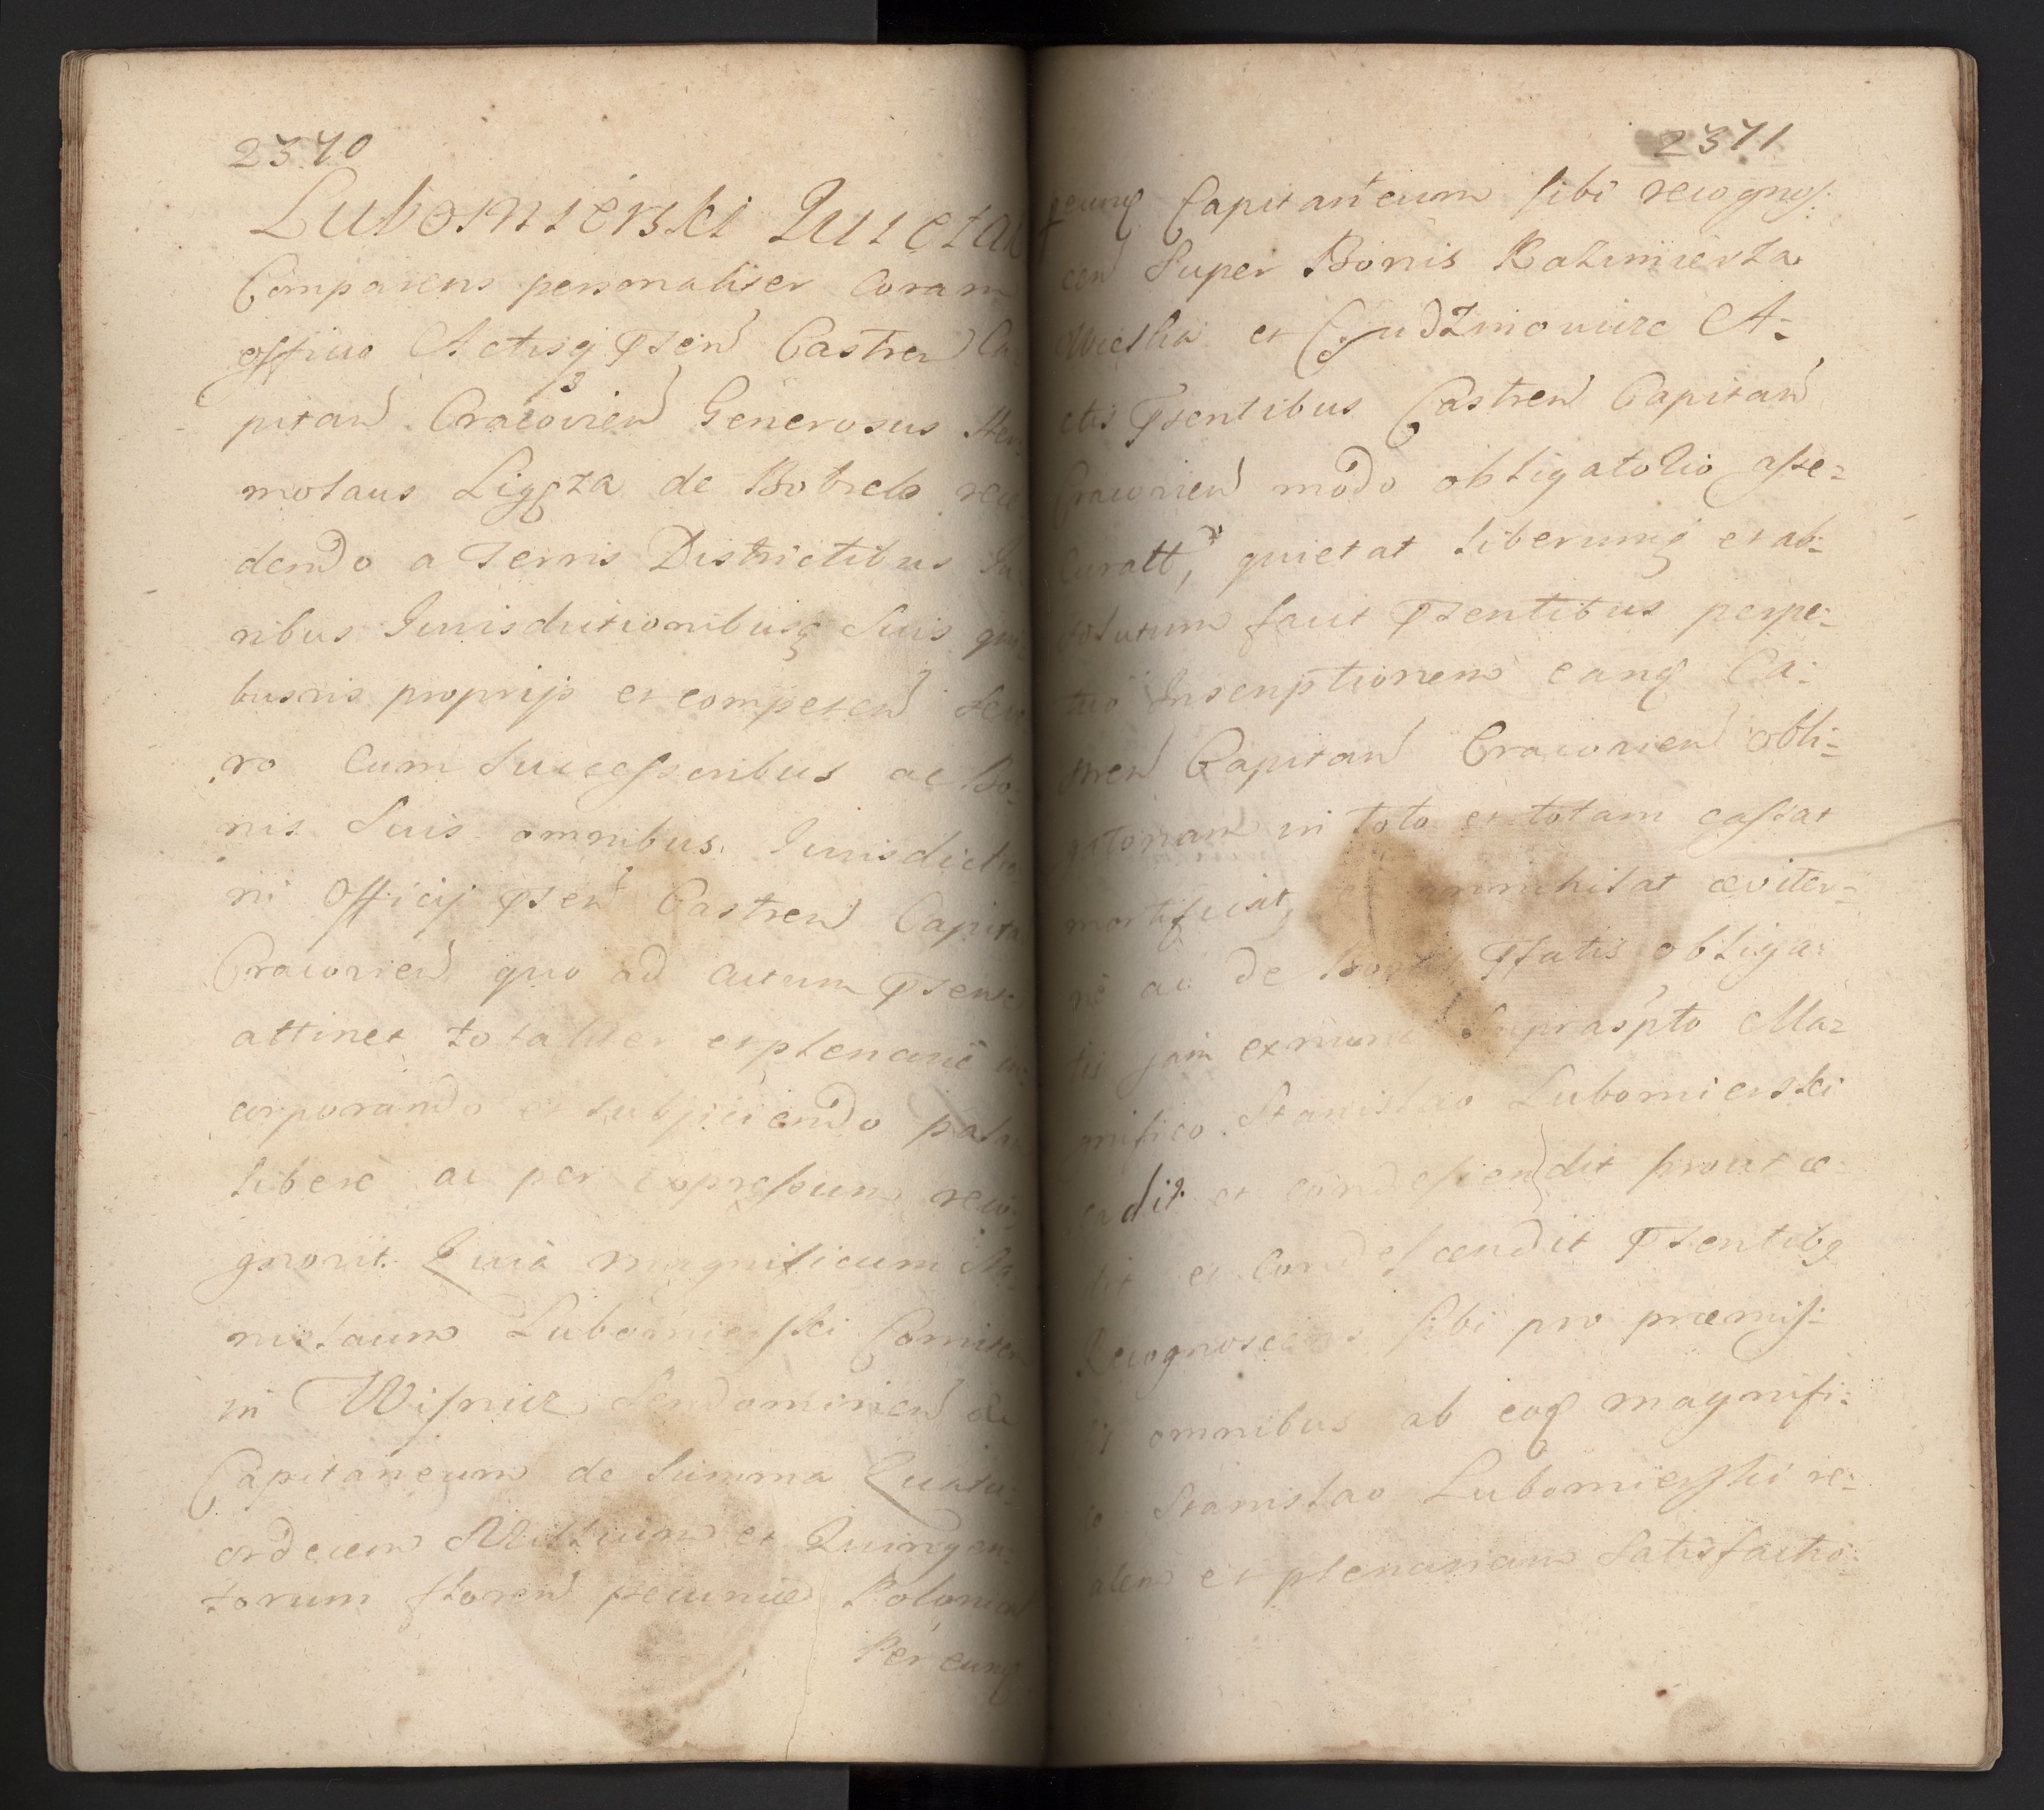 2370
Lubomierski Quietat
Comparens personaliter Coram
officio Actisq Psen Castren Ca-
pitan Cracovien Generosus Her-
molaus Ligęza de Bobrek rece
dendo a Terris Districtibus Iu
ribus Iurisdictionibusq Suis qui
busvis proprijs et competen Se
ro Cum Successoribus ac Bo-
nis Suis omnibus Iurisdictio
ni Officij Psen Castren Capita
Cracovien quo ad actum Psente
attinet totaliter et plenarie in-
corporando et subijciendo palam
libere ac per expressum recog-
gnovit. Quia magnificum Sta-
nislaum Lubomierski Comitem
in Wisnicz Sendomirien &c
Capitaneum de Summa Quatu-
ordecem Millium et Quingen-
torum floren pecuniæ Polonical
Per eunq
2371
Peunq Capitaneum sibi recognos:
cen Super Bonis Kazimierza
Wielka et Cudzinowice A-
ctis Psentibus Castren Capitan
Cracovien modo obligatorio asse-
Curatt, quietat liberumq et ab-
solutum facit Psentibus perpe-
tuo Inscriptionem eanq Ca-
stren Capitan Cracovien obli-
gatoriam in toto et totam cassat
mortificat, annichilat æviter-
ne ac de Bonis Pfatis obliga-
tis jam exnunc SuprasPto Ma-
gnifico Stanislao Lubomierski
cadit et condescendit prout ce-
dit et Condescendit Psentibq
Recognoscens sibi pro præmis-
is omnibus ab eoq magnifi-
co Stanislao Lubomierski re-
alem et plenariam Satisfactio-